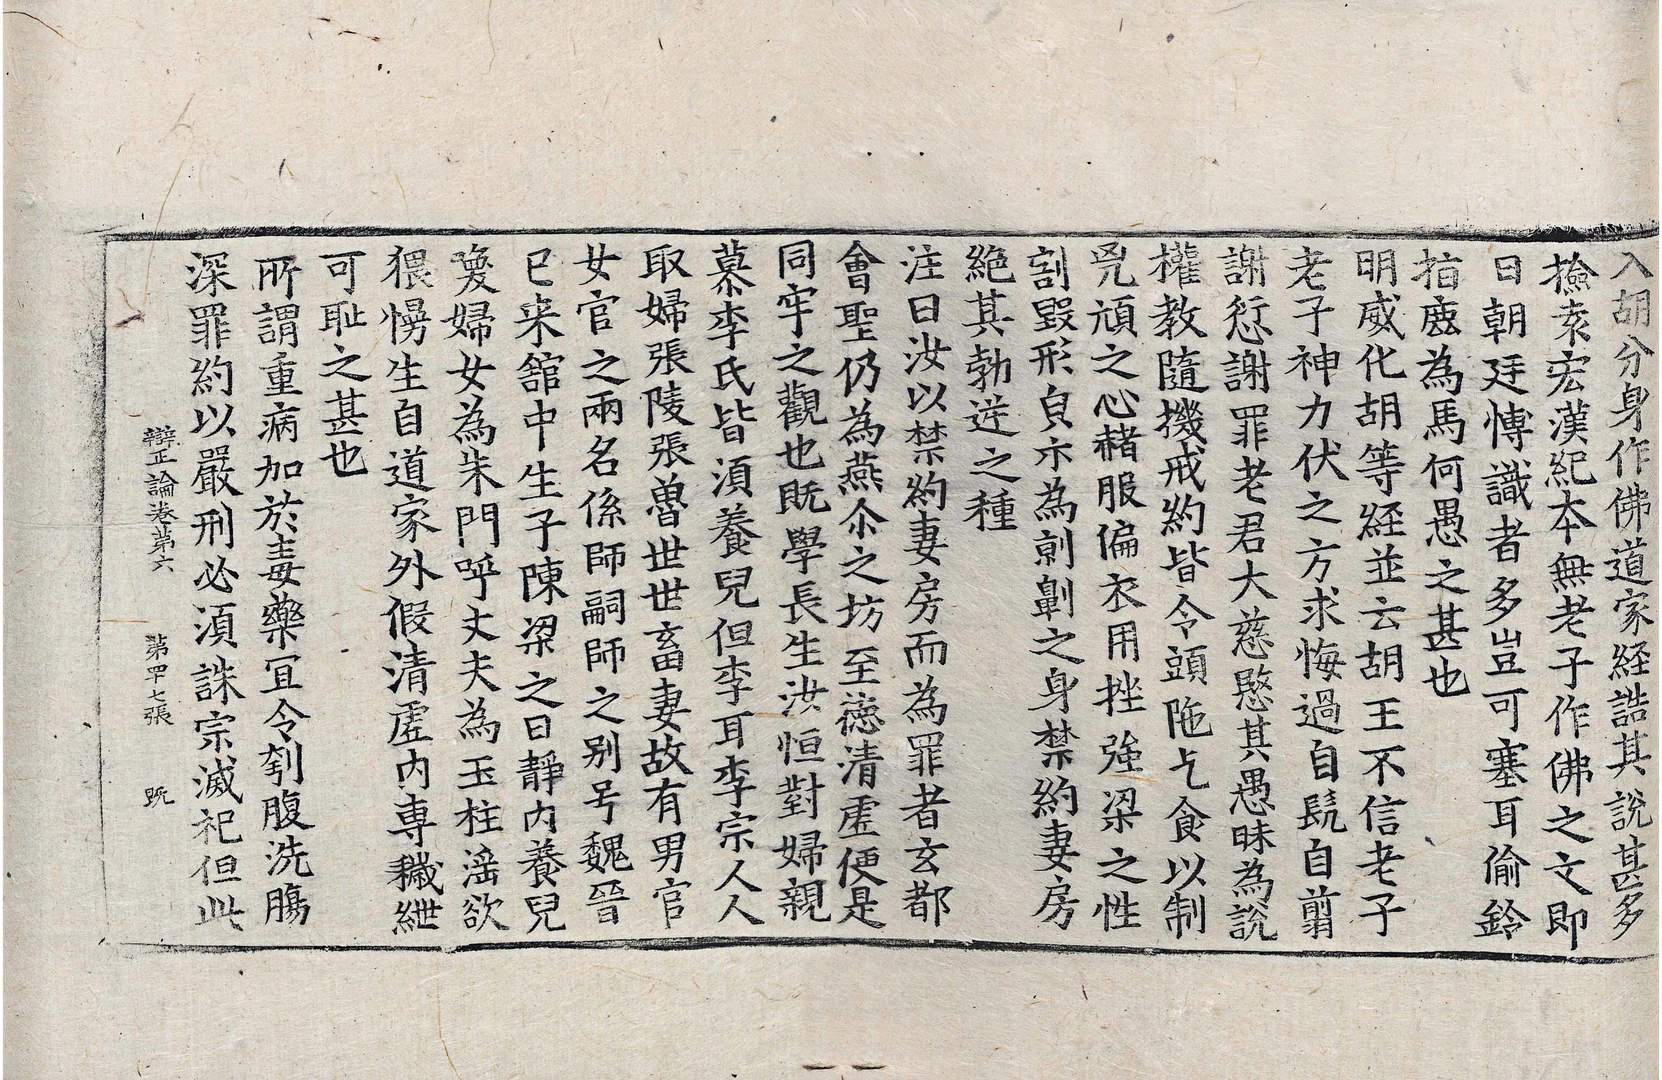 入胡分身作佛道家経誥其説甚多
撿索宏漢紀本無老子作佛之文即
日朝廷博識者多豈可塞耳偷鈴
指鹿為馬何愚之甚也
明威化胡等経並云胡王不信老子
老子神力伏之方求悔過自髠自翦
謝愆謝罪老君大慈愍其愚昧為說
權教隨機戒約皆令頭陁乞食以制
兇頑之心赭服偏衣用挫強梁之性
割毀形皃示為剠劓之身禁約妻房
絶其勃逆之種
注曰汝以禁約妻房而為罪者玄都
會聖仍為燕尒之坊至德清虛便是
同牢之觀也既學長生汝恒對婦親
慕李氏皆湏養兒但李耳李宗人人
取婦張陵張魯世世畜妻故有男官
女官之兩名係師嗣師之別号魏晉
已来舘中生子陳梁之日靜內養兒
喚婦女為朱門呼丈夫為玉柱滛欲
猥㤺生自道家外假清虛內専穢紲
可耻之甚也
所謂重病加於毒藥冝令刳膓洗膓
深罪約以嚴刑必湏誅宗滅祀但此
辯正論卷第六　第四十七張　既